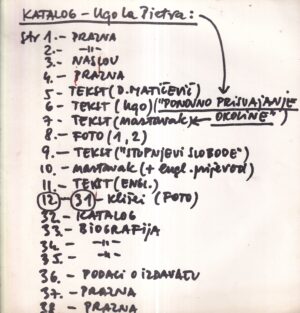 KATALOG - Ugo La Pietra:
str 1. - PRAZNA
2. - -"-
3. - NASLOV
4. - PRAZNA
5 - TEKST (D. MATIČEVIĆ)
6 - TEKST (Ugo) ("PONOVNO PRISVAJANJE
7 - TEKST (nastavak) OKOLINE")
8 - FOTO (1, 2)
9. - TEKST ("STUPNJEVI SLOBODE")
10. - nastavak (+ engl. prijevod)
11. - TEKST (ENGL.)
12 - 31 - klišei (FOTO)
32. - KATALOG
33. - BIOGRAFIJA
34. - -"-
35. - -"-
36. - PODACI O IZDAVAČU
37. - PRAZNA
38 - PRAZNA